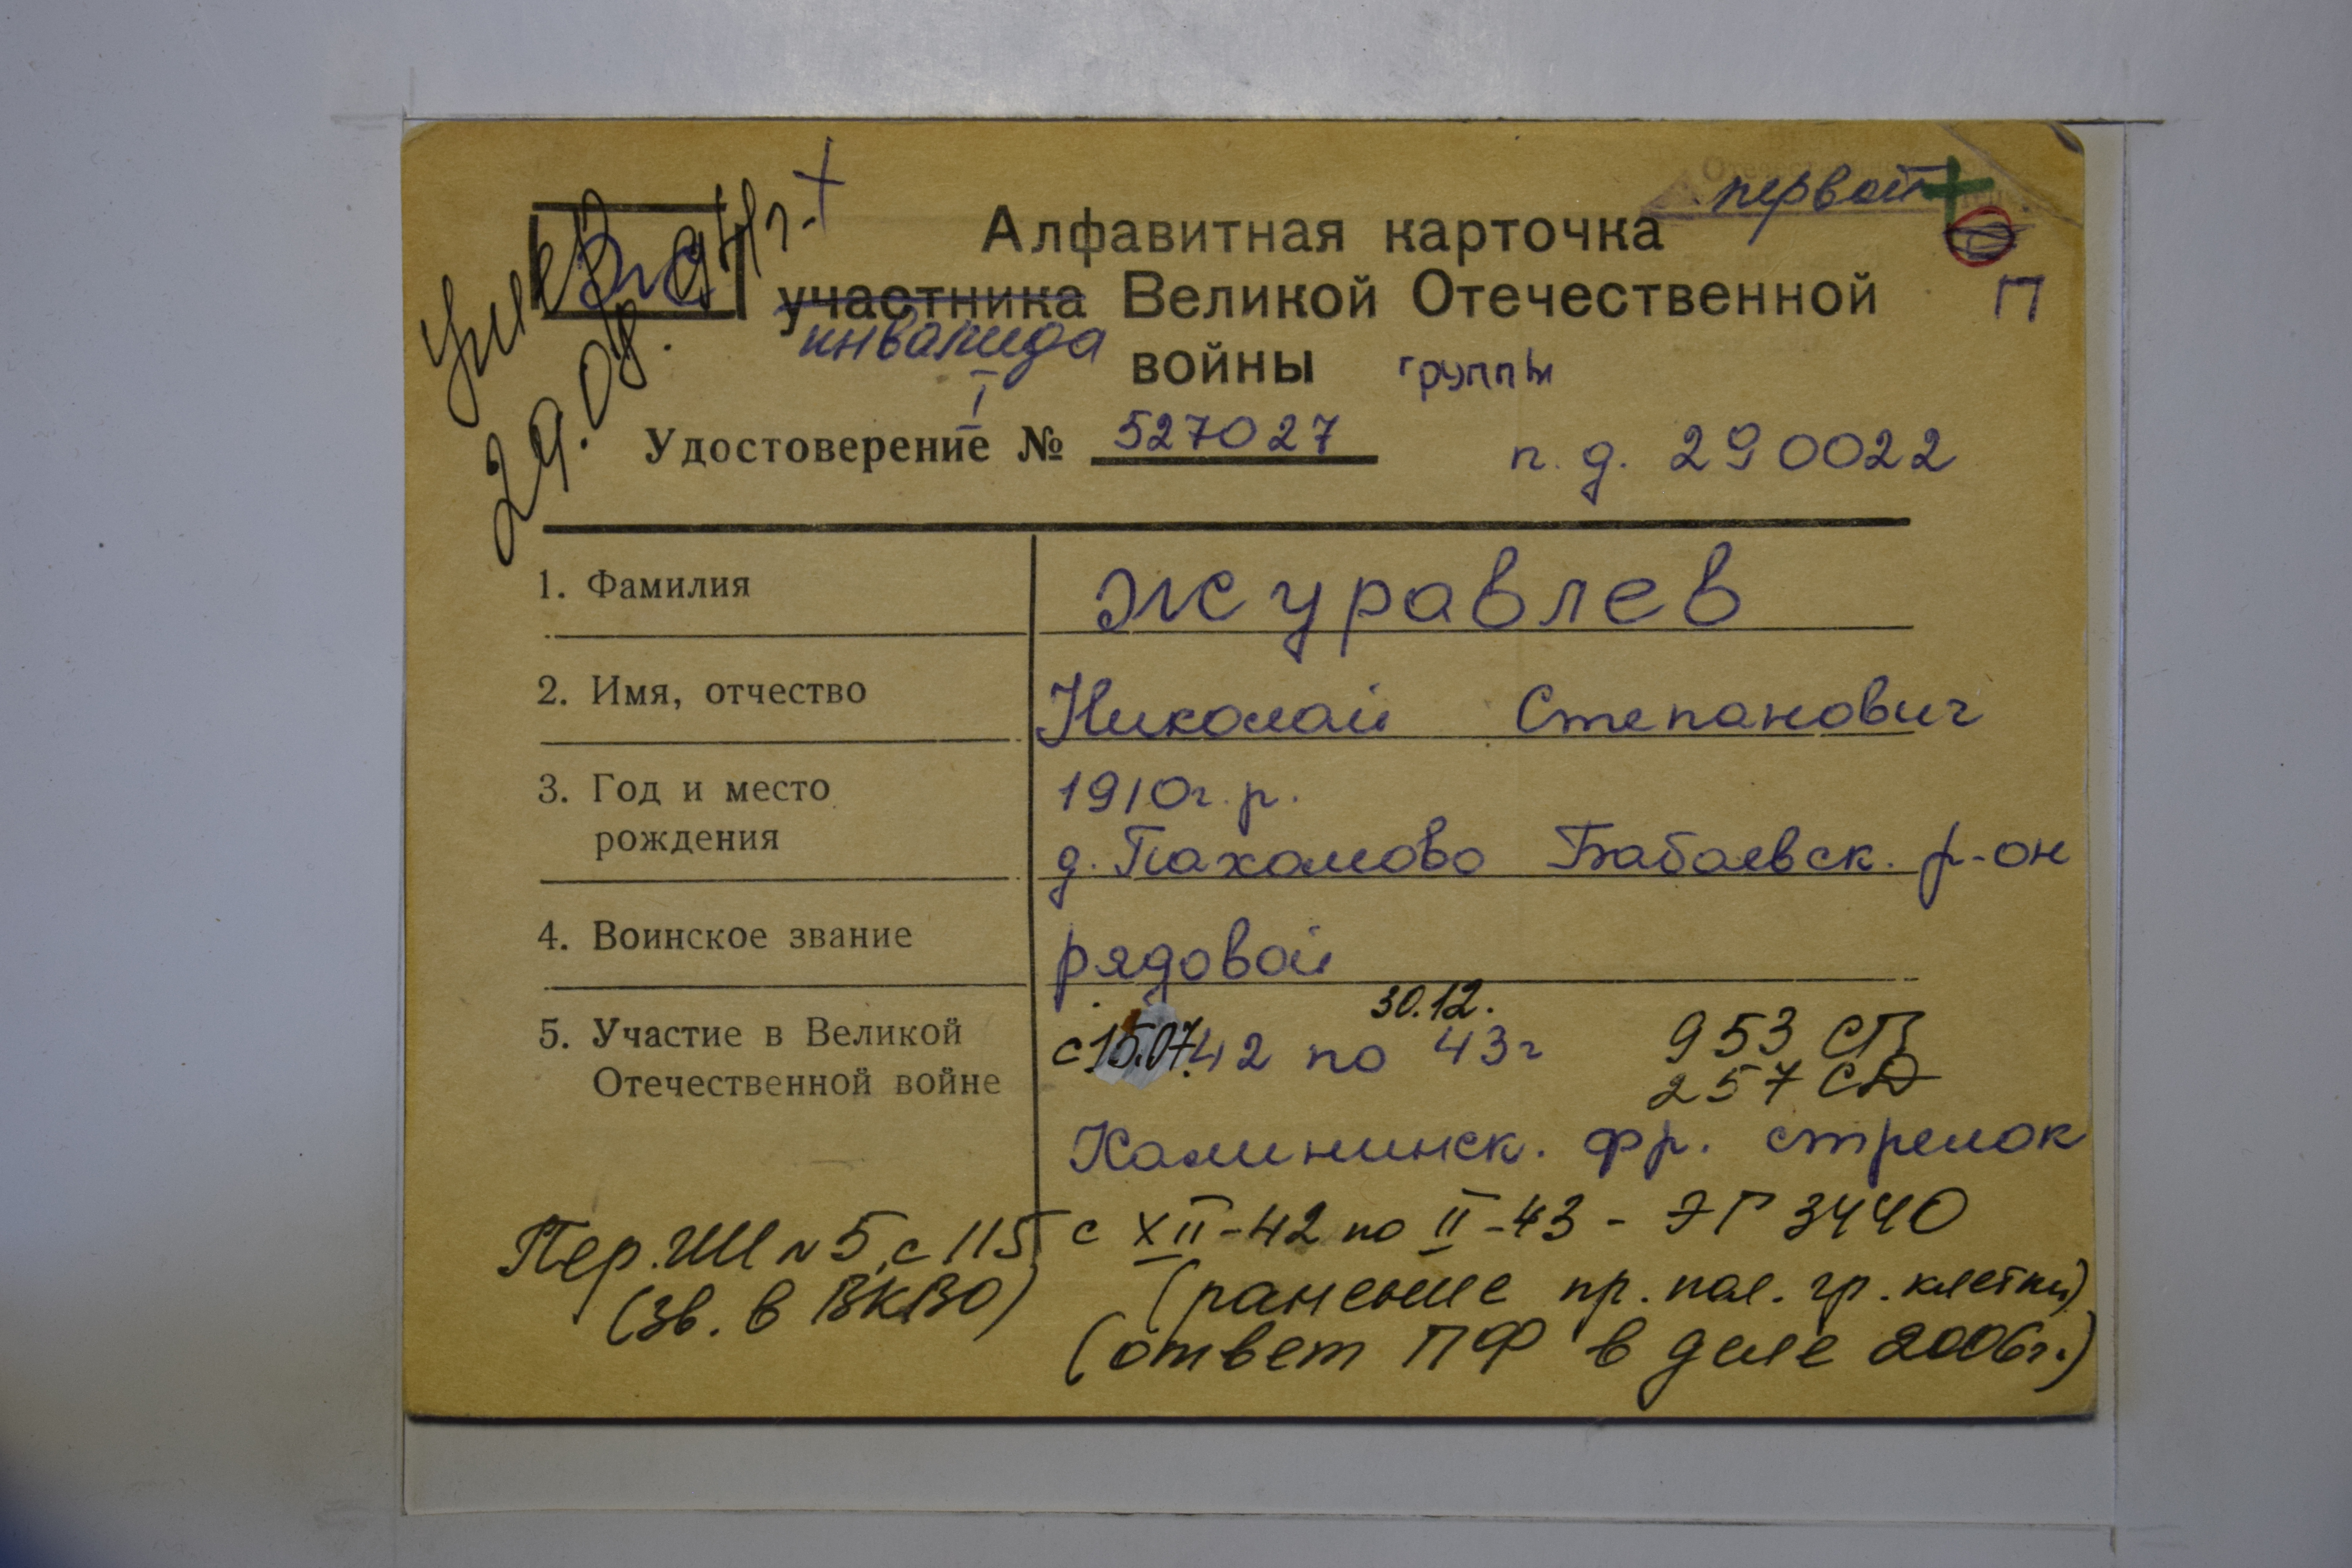 первой
Алфавитная карточка
Ж
участника Великой Отечественной
П
инвалида
войны группы
I
29.08.
Удостоверение № 527027
п. д. 290022
1. Фамилия
Журавлев
2. Имя, отчество
Николай Степанович
3. Год и место
рождения
1910г. р.
д. Пахомово Бабаевск. р-он
4. Воинское звание
рядовой
5. Участие в Великой
Отечественной войне
30.12.
с 15.07.42 по 43г
953 СП
257 СД
Калининск. фр. стрелок
с XII-42 по II-43 - ЭГ 3440
(ранение пр. пол. гр. клетки)
(ответ ПФ в деле 2006г.)
Пер. ШИ № 5, с 115
(зв. в ВКВО)